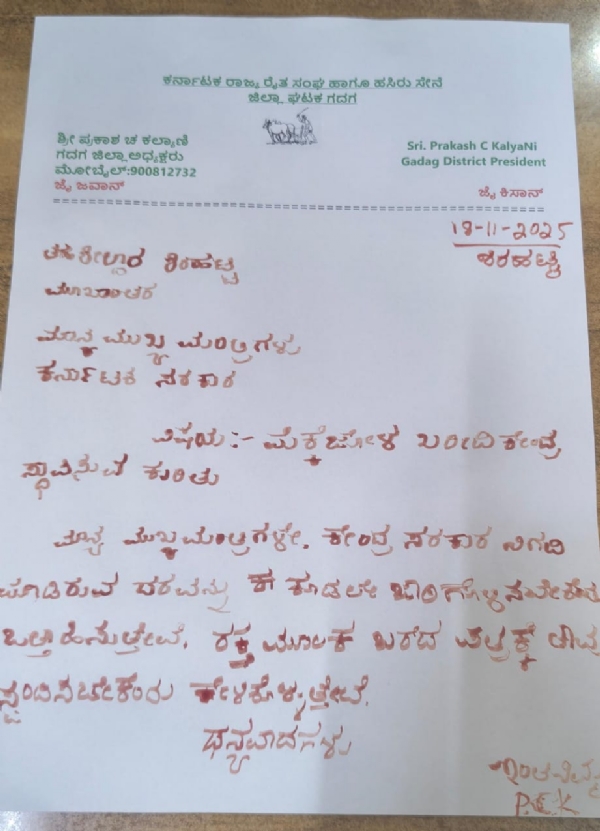 ಕರ್ನಾಟಕ ರಾಜ್ಯ ರೈತ ಸಂಘ ಹಾಗೂ ಹಸಿರು ಸೇನೆ
ಜಿಲ್ಲಾ ಘಟಕ ಗದಗ
ಶ್ರೀ ಪ್ರಕಾಶ ಚ ಕಲ್ಯಾಣಿ
ಗದಗ ಜಿಲ್ಲಾ ಅಧ್ಯಕ್ಷರು
ಮೋಬೈಲ್:900812732
ಜೈ ಜವಾನ್
Sri. Prakash C KalyaNi
Gadag District President
ಜೈ ಕಿಸಾನ್
18-11-2025
ಶಿರಹಟ್ಟಿ
ತಹಶೀಲ್ದಾರ ಶಿರಹಟ್ಟಿ
ಮೂಖಾಂತರ
ಮಾನ್ಯ ಮುಖ್ಯ ಮಂತ್ರಿಗಳು
ಕರ್ನಾಟಕ ಸರಕಾರ
ವಿಷಯ:- ಮೆಕ್ಕೆಜೋಳ ಖರೀದಿ ಕೇಂದ್ರ
ಸ್ಥಾಪಿಸುವ ಕುರಿತು
ಮಾನ್ಯ ಮುಖ್ಯಮಂತ್ರಿಗಳೇ. ಕೇಂದ್ರ ಸರಕಾರ ನಿಗದಿ
ಮಾಡಿರುವ ದರವನ್ನು ಈ ಕೂಡಲೇ
ಒತ್ತಾಹಿಸುತ್ತೇವೆ. ರಕ್ತ ಮೂಲಕ ಬರೆದ ಪತ್ರಕ್ಕೆ ತೀವ್ರ
ಸ್ಪಂದಿಸಬೇಕೆಂದು ಕೇಳಿಕೊಳ್ಳುತ್ತೇವೆ.
ಧನ್ಯವಾದಗಳು
P.C.K